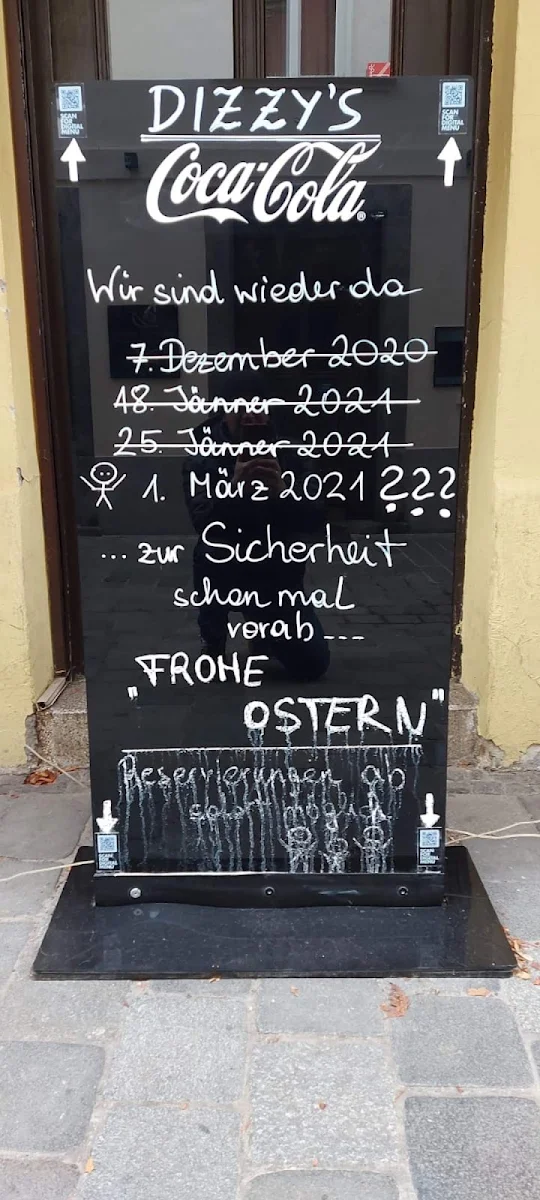 DIZZY'S
Coca-Cola®
SCAN FOR DIGITAL MENU
SCAN FOR DIGITAL MENU
Wir sind wieder da
7. Dezember 2020
18. Jänner 2021
25. Jänner 2021
1. März 2021 ???
... zur Sicherheit
schon mal
vorab ---
"FROHE
OSTERN"
Reservierungen ab
sofort möglich
SCAN FOR DIGITAL MENU
SCAN FOR DIGITAL MENU